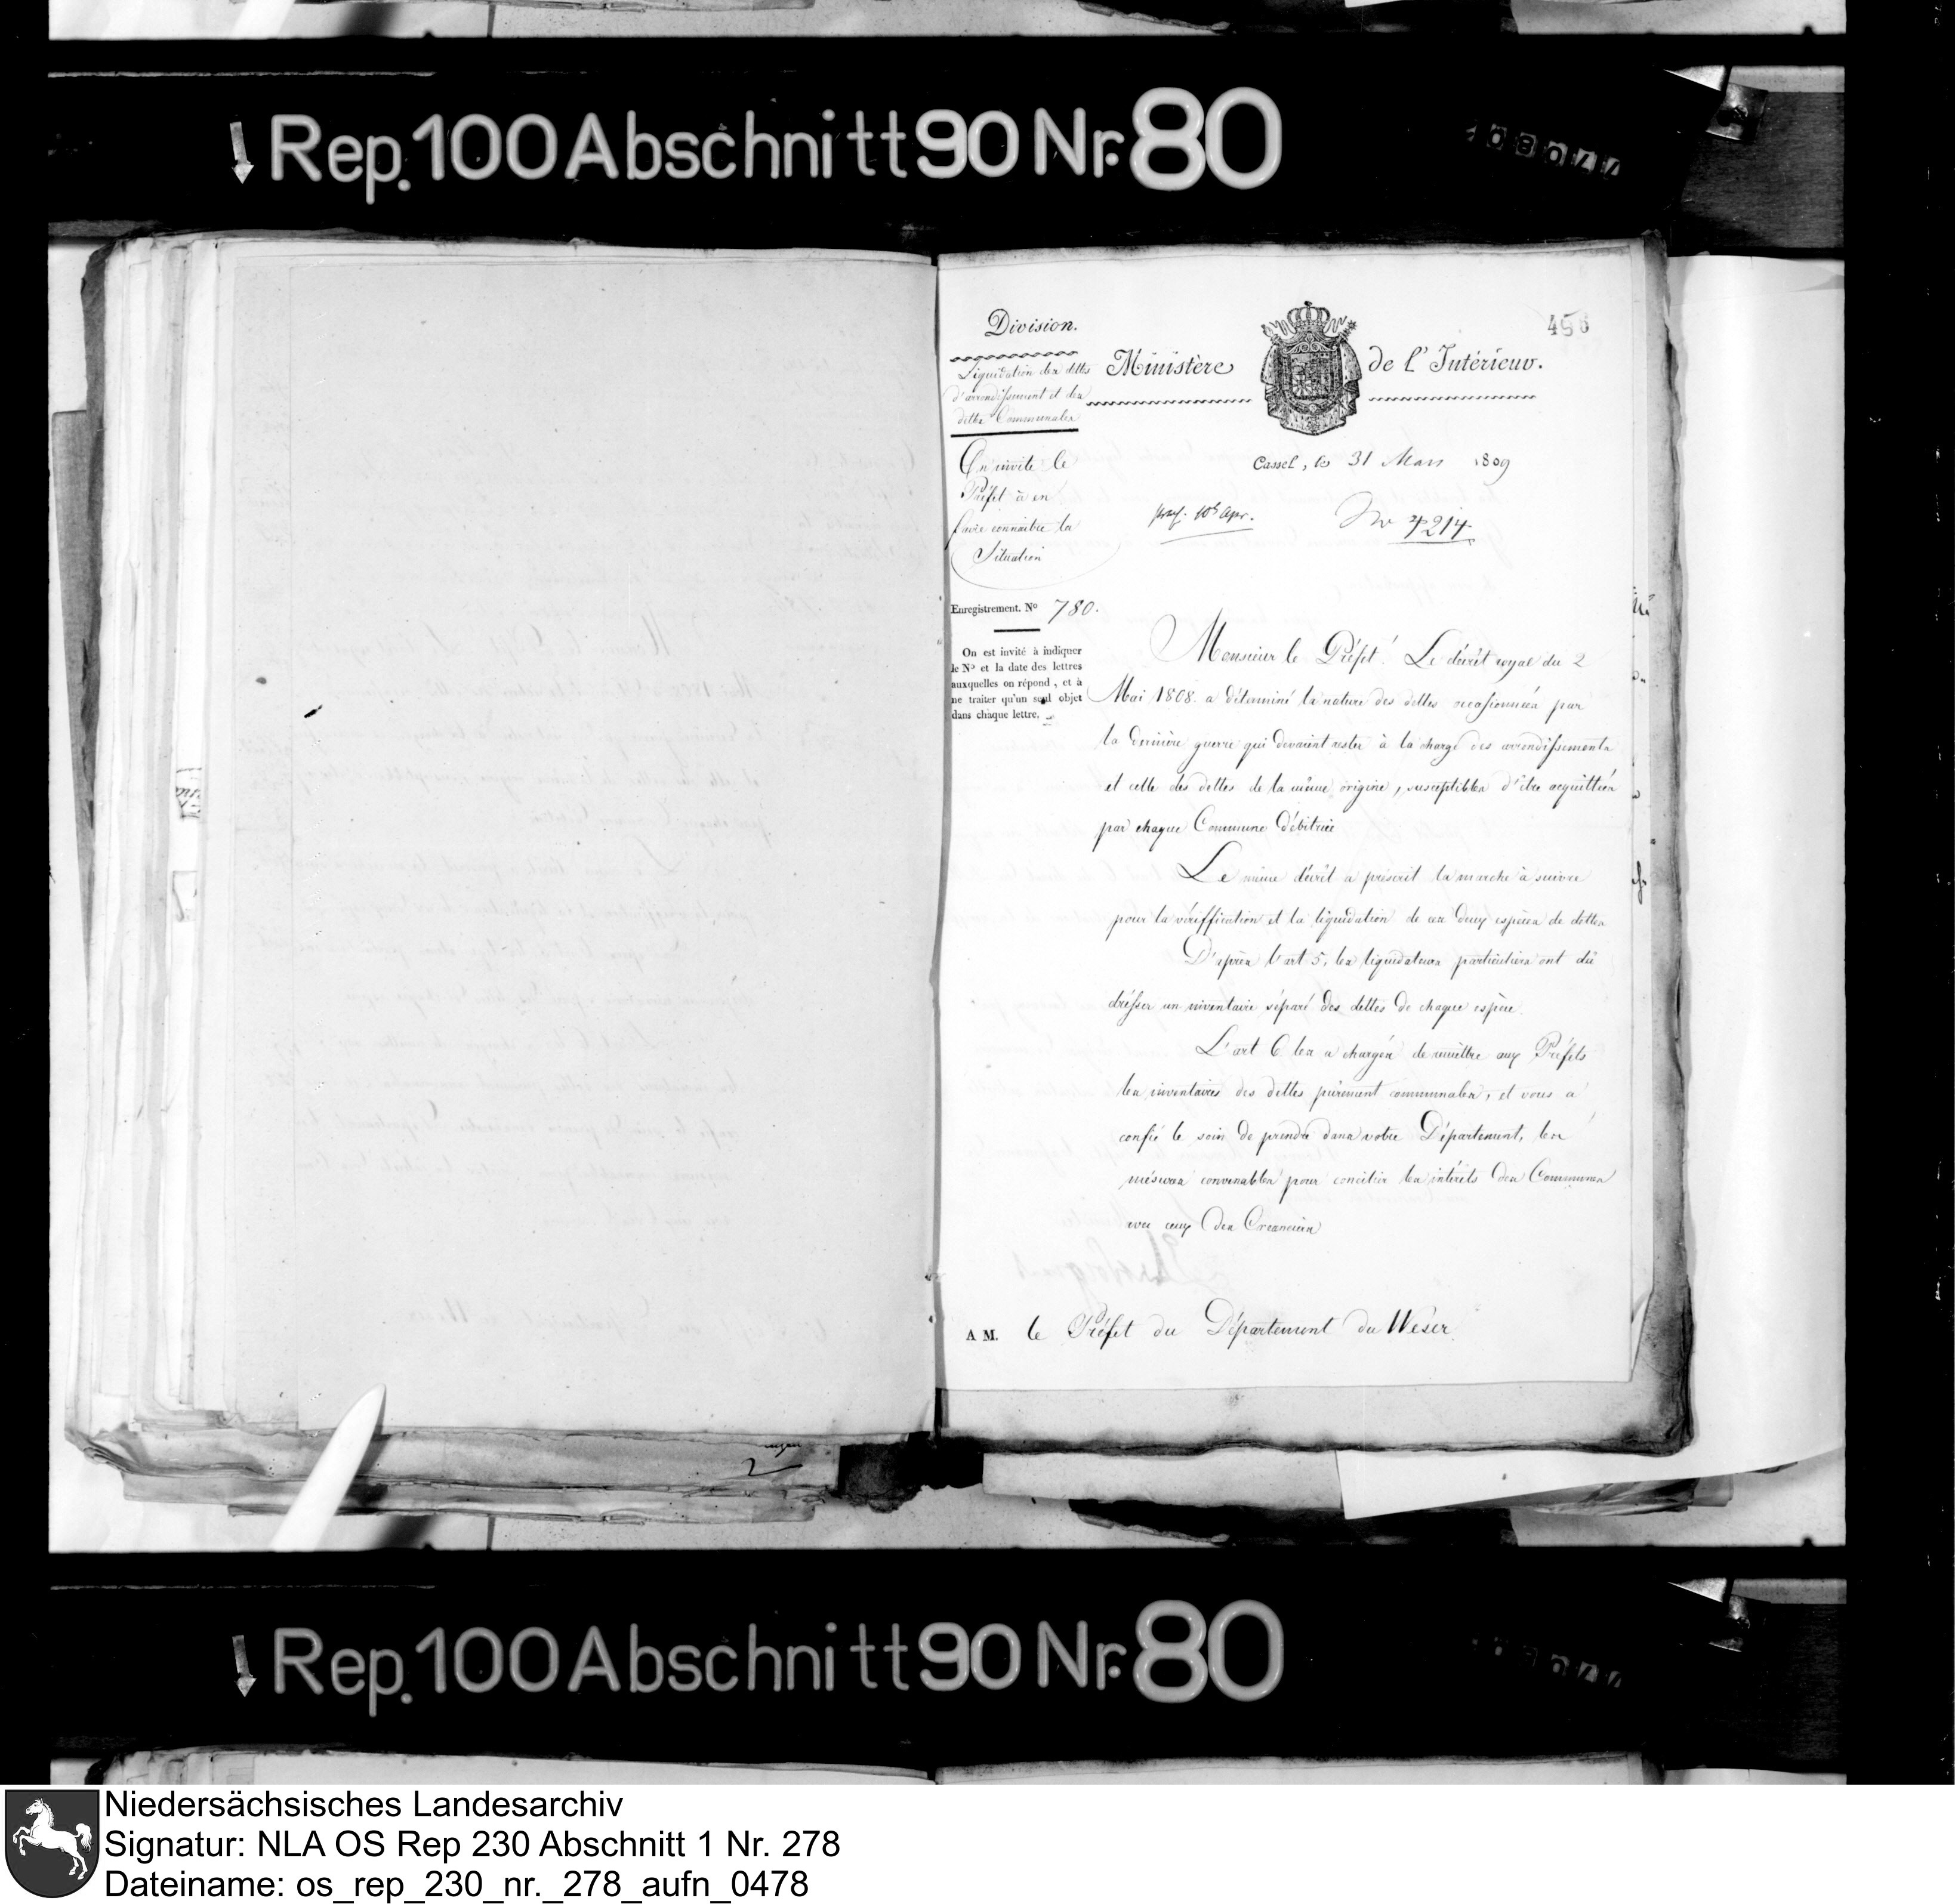 Rep. 100 Abschnitt 90 Nr. 80
Division.
Liquidation des dettes
d'arrondissement et des
dettes Communales
Ministère de l'Intérieur.
On invite le
Préfet à en
faire connaitre la
Situation
Cassel, le 31 Mars 1809
praes. 10t Apr.
No 4214
Enregistrement. No 780.
On est invité à indiquer
le No et la date des lettres
auxquelles on répond, et à
ne traiter qu'un seul objet
dans chaque lettre.
Monsieur le Préfet! Le décrêt royal du 2
Mai 1808. a déterminé la nature des dettes occasionnées par
la dernière guerre qui devaient rester à la charge des arrondissements
et celle des dettes de la même origine, susceptibles d'être acquittées
par chaque Commune débitrice
Le même décrêt a préscrit la marche à suivre
pour la vériffication et la liquidation de ces deux espèces de dettes
D'après l'art 5, les liquidateurs particuliers ont dû
drésser un inventaire séparé des dettes de chaque espèce.
L'art 6 les a chargés de remettre aux Préfets
les inventaires des dettes purement communales, et vous a
confié le soin de prendre dans votre Département, les
mésures convenables pour concilier les intérêts des Communes
avec ceux des Creanciers
A M. le Préfet du Département du Weser.
Rep. 100 Abschnitt 90 Nr. 80
Niedersächsisches Landesarchiv
Signatur: NLA OS Rep 230 Abschnitt 1 Nr. 278
Dateiname: os_rep_230_nr._278_aufn_0478